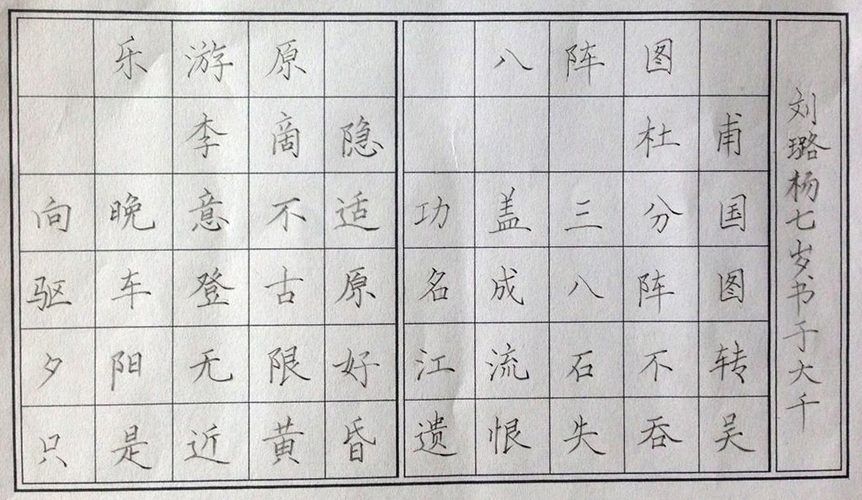 乐游原
李啇隐
向晚意不适
驱车登古原
夕阳无限好
只是近黄昏
八阵图
杜甫
功盖三分国
名成八阵图
江流石不转
遗恨失吞吴
刘璐杨七岁书于大千